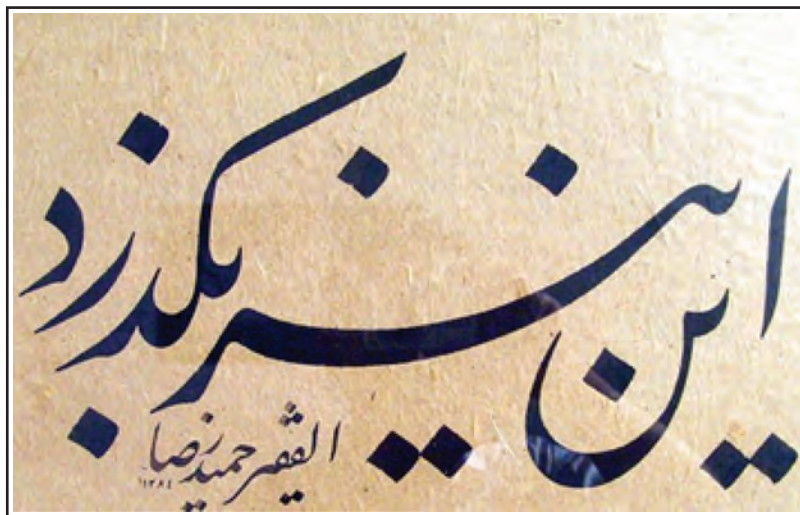 این نیز بگذرد
الفقیر حمیدرضا
۱۳۸٤